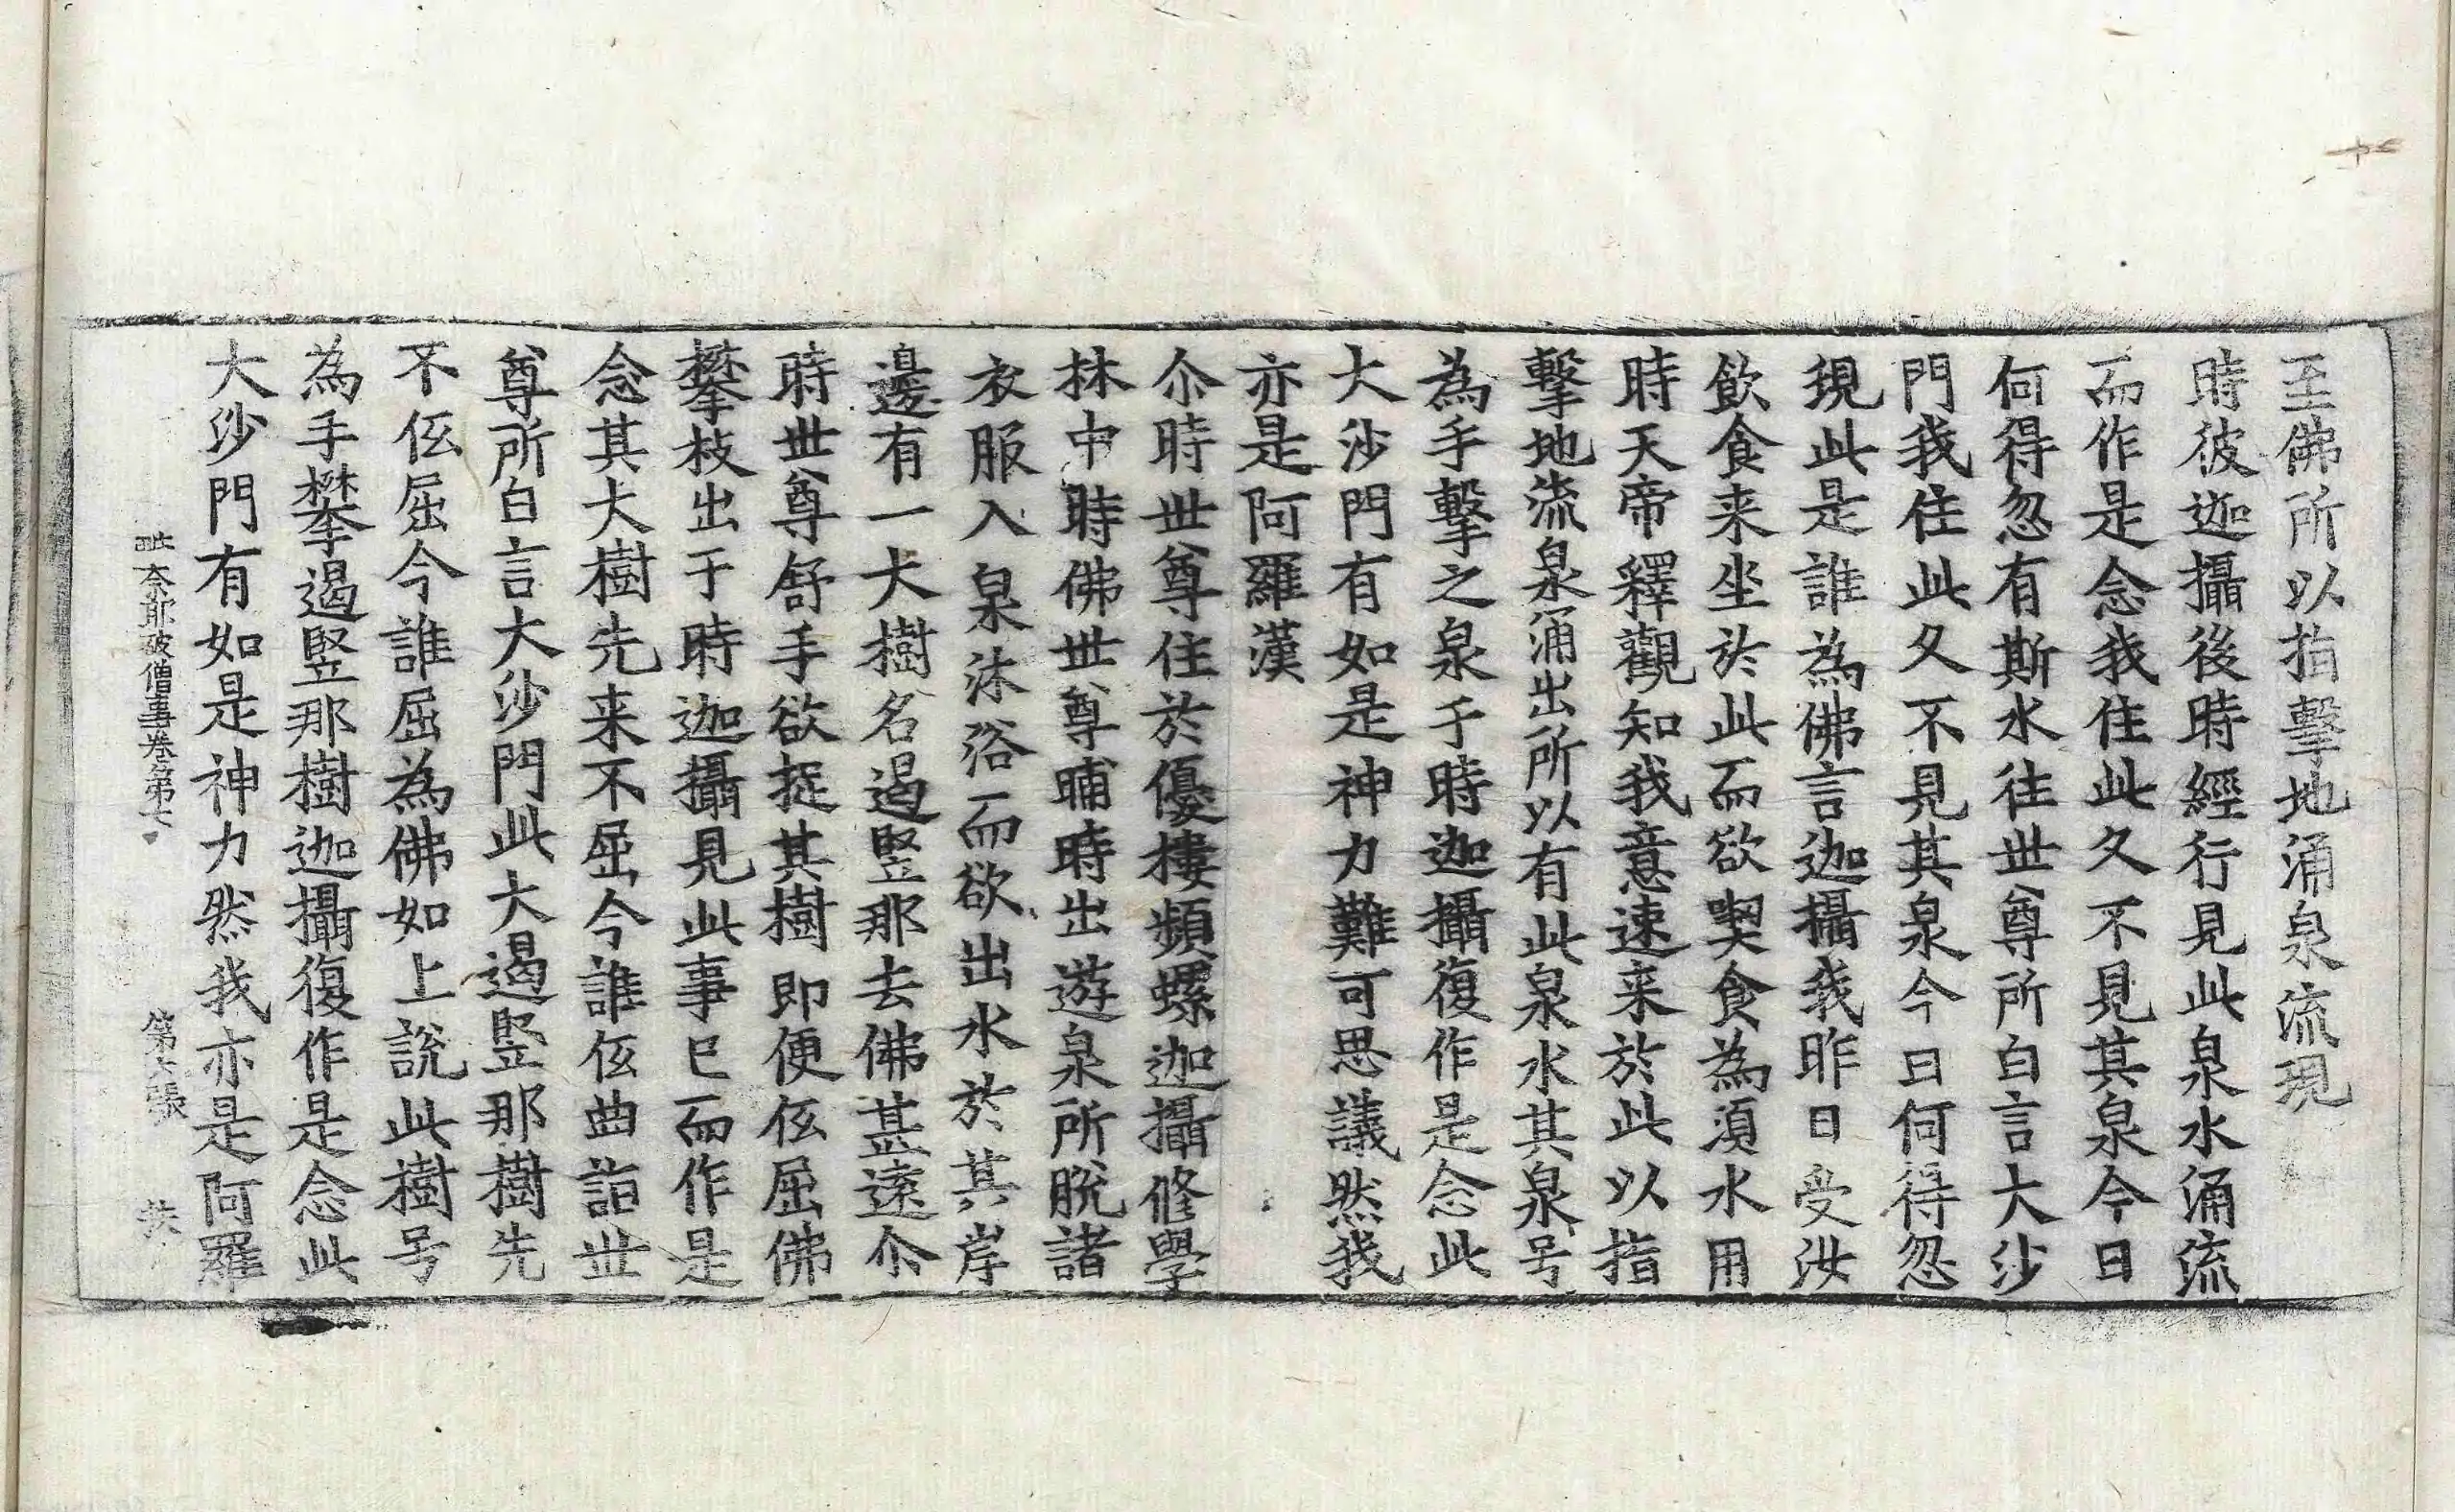 至佛所以指擊地涌泉流現
時彼迦攝後時經行見此泉水涌流
而作是念我住此久不見其泉今日
何得忽有斯水往世尊所白言大沙
門我住此久不見其泉今日何得忽
現此是誰為佛言迦攝我昨日受汝
飲食来坐於此而欲喫食為須水用
時天帝釋觀知我意速来於此以指
擊地流泉涌出所以有此泉水其泉号
為手擊之泉于時迦攝復作是念此
大沙門有如是神力難可思議然我
亦是阿羅漢
尒時世尊住於優樓頻螺迦攝修學
林中時佛世尊晡時出遊泉所脫諸
衣服入泉沐浴而欲出水於其岸
邊有一大樹名遏竪那去佛甚遠尒
時世尊舒手欲捉其樹即便仾屈佛
攀枝出于時迦攝見此事已而作是
念其大樹先来不屈今誰仾曲詣世
尊所白言大沙門此大遏竪那樹先
不仾屈今誰屈為佛如上說此樹号
為手攀遏竪那樹迦攝復作是念此
大沙門有如是神力然我亦是阿羅
毗奈耶破僧事卷第七 第六張